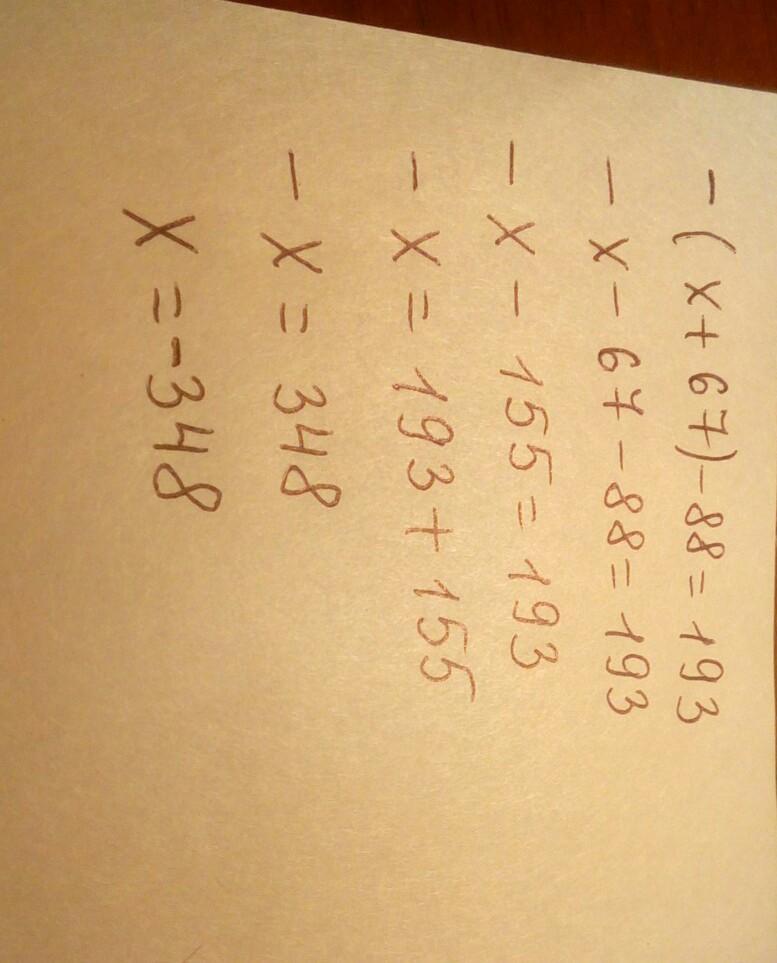 - (x + 67) - 88 = 193
- x - 67 - 88 = 193
- x - 155 = 193
- x = 193 + 155
- x = 348
x = -348